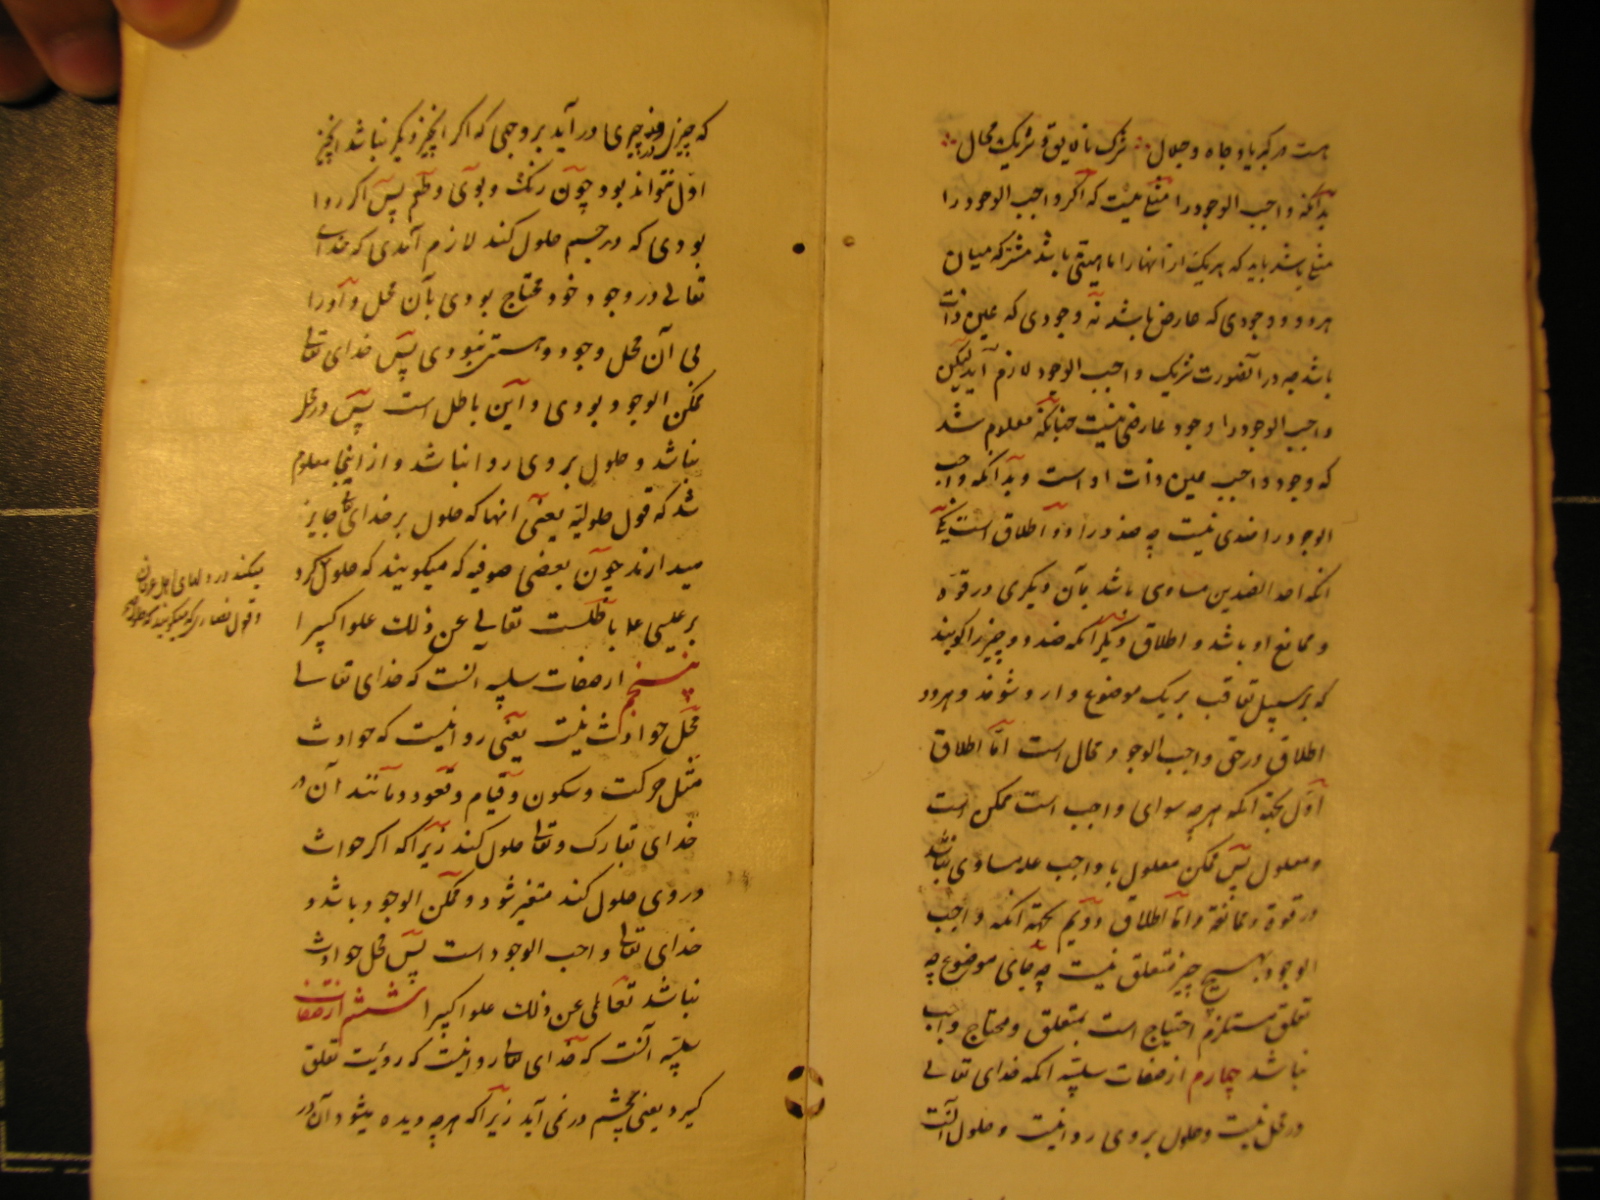 هست در کبریا و جاه و جلال شرک نالایق و شریک محال
بدانکه واجب الوجود را مثلی نیست که اگر واجب الوجود را
مثلی باشد باید که هریک از آنها را ماهیتی باشد مشترک میان
هر دو و وجودی که عارض باشد نه وجودی که عین ذات
باشد چه در آنصورت شریک واجب الوجود لازم آید لیکن
واجب الوجود را وجود عارضی نیست چنانکه معلوم شد
که وجود واجب عین ذات او است و بدانکه واجب
الوجود را ضدی نیست چه ضد را دو اطلاق است یکی
انکه احد الضدین مساوی باشد بآن دیگری در قوه
و ممانع او باشد و اطلاق دیگر آنکه ضد دو چیز را گویند
که بر سبیل تعاقب بر یک موضوع وارد شوند و هر دو
اطلاق در حق واجب الوجود محال است اما اطلاق
اول بجهة انکه هر چه سوای واجب است ممکن است
و معلول پس ممکن معلول با واجب علة مساوی نباشد
در قوة و ممانعة و اما اطلاق دویم بجهة انکه واجب
الوجود بهیچ چیز متعلق نیست چه جای موضوع چه
تعلق مستلزم احتیاج است بمتعلق و محتاج واجب
نباشد چهارم از صفات سلبیّه انکه خدای تعالی
در محل نیست و حلول بر وی روا نیست و حلول آنست
که چیزی در چیزی در آید بر وجهی که اگر انچیز دیگر نباشد انچیز
اول نتواند بود چون رنک و بوی و طعم پس اگر روا
بودی که در جسم حلول کند لازم آمدی که خدای
تعالی در وجود خود محتاج بودی بآن محل و او را
بی آن محل وجود و هستی نبودی پس خدای تعالی
ممکن الوجود بودی و این باطل است پس در محل
نباشد و حلول بر وی روا نباشد و از اینجا معلوم
شد که قول حلولیّه یعنی انها که حلول بر خدای تعالی جایز
میدارند چون بعضی صوفیه که میکویند که حلول کرد
بر عیسی ع باطلست تعالی عن ذلک علوا کبیرا
پنجم از صفات سلبیه انست که خدای تعالی
محل حوادث نیست یعنی روا نیست که حوادث
مثل حرکت و سکون و قیام و قعود و مانند آن در
خدای تبارک و تعالی حلول کند زیرا که اگر حوادث
در وی حلول کند متغیر شود و ممکن الوجود باشد و
خدای تعالی واجب الوجود است پس محل حوادث
نباشد تعالی عن ذلک علوا کبیرا ششم از صفات
سلبیّه آنست که خدای تعالی روا نیست که رؤیت تعلق
کیرد یعنی بچشم در نمی آید زیرا که هر چه دیده میشود آن در
میکند در دلهای اهل عرفان
و قول نصاری که میکویند که حلول کرده